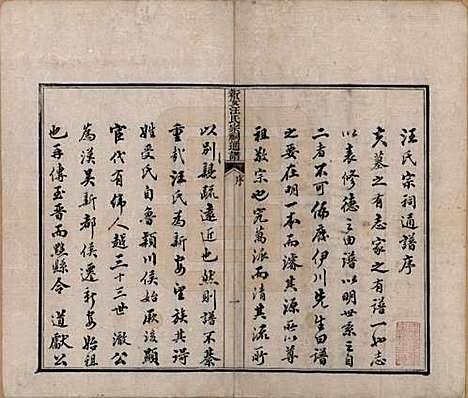 汪氏宗祠通譜序
夫墓之有志家之有譜一也志
以表修德之由譜以明世系之自
二者不可偏廢伊川先生曰譜
之要在明一本而濬其源所以尊
祖敬宗也究萬派而清其流所
新安汪氏宗祠通譜
序
一
以別親疏遠近也然則譜不綦
重哉汪氏為新安望族其得
姓受氏自魯潁川侯始厥後顯
官代有偉人越三十三世澈公
為漢吳新都侯遷新安始祖
也再傳至晉而黟縣令道獻公